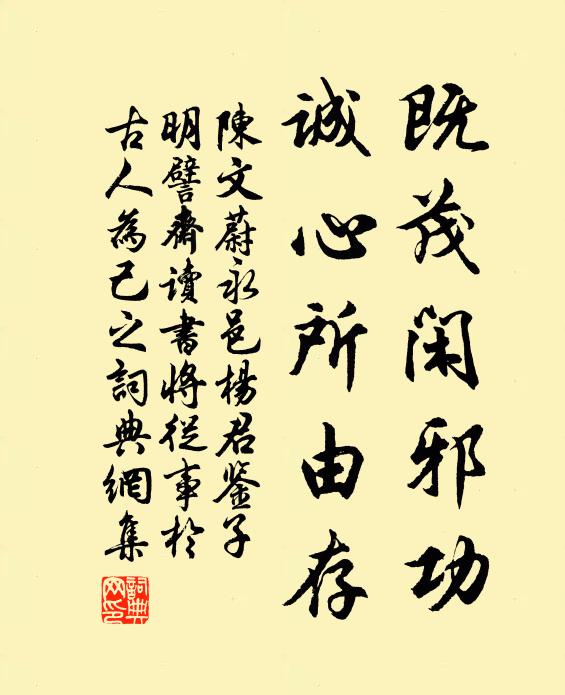 既茂閑邪功
誠心所由存
陳文蔚永邑楊君鉴子
明譬齋讀書將從事於
古人為己之詞典網集
詞典網印